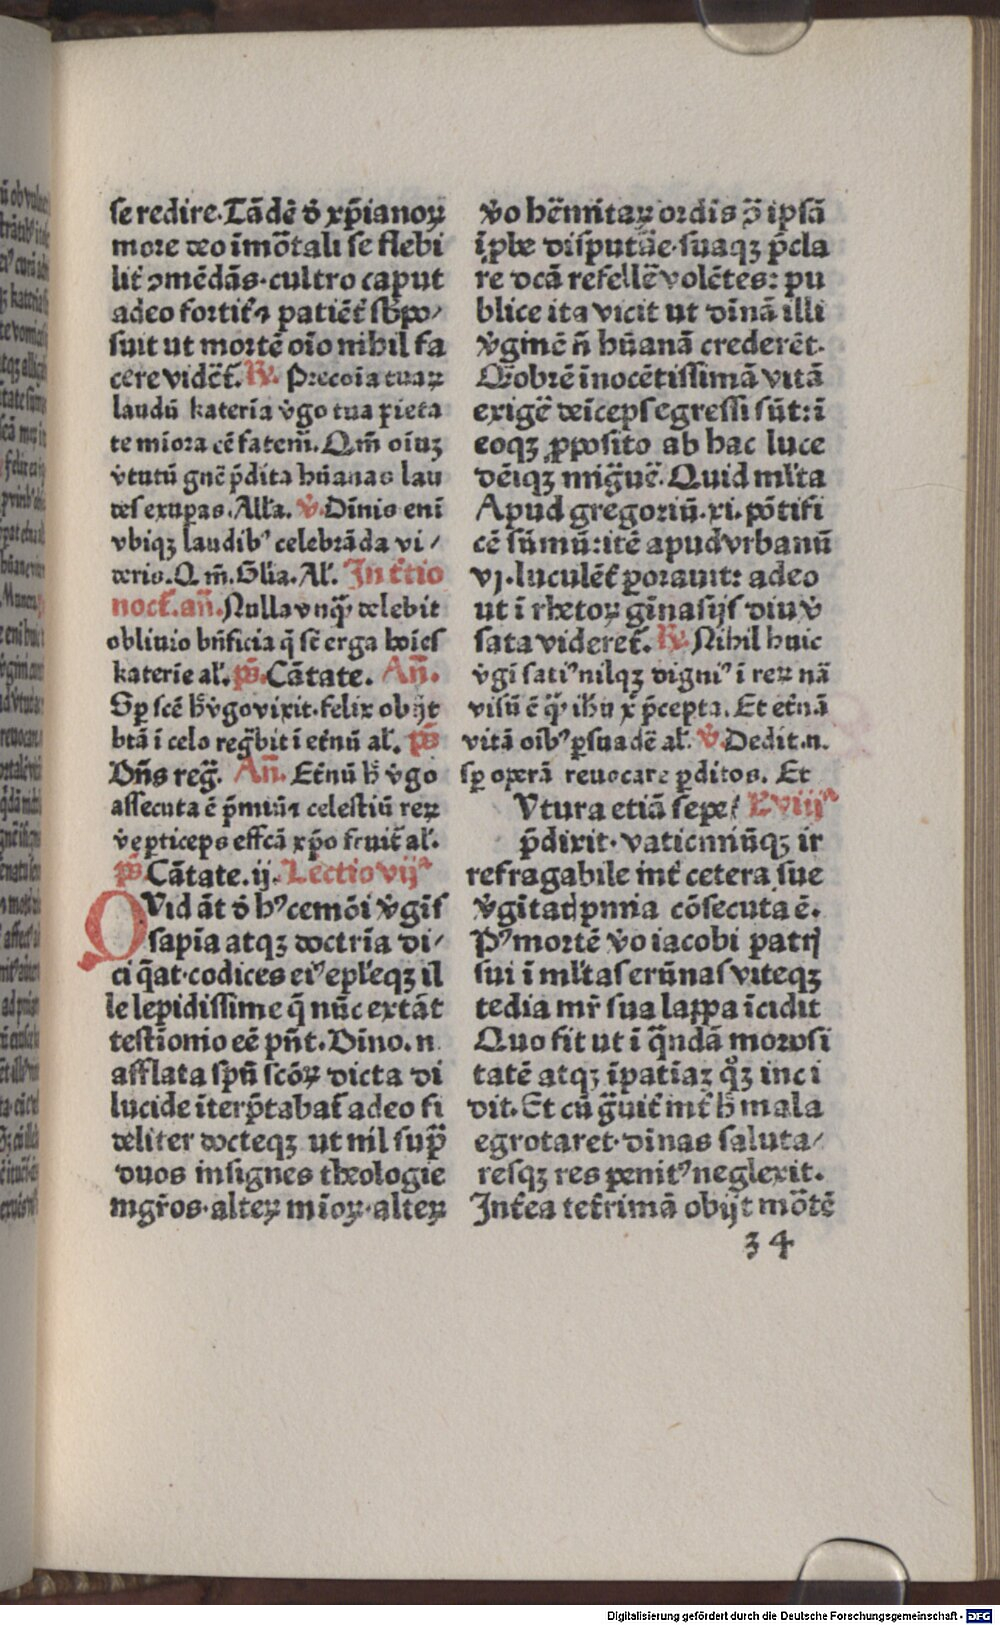 se redire. Tādē ō xp̄ianoꝝ
more deo īmōtali se flebi
lit̄ ꝯmēdās. cultro caput
adeo fortit̄ ⁊ patiēt̄ sb̄po/
suit ut mortē oīo nihil fa
cere vidēt̄. R̄. Preconia tuaꝝ
laudū katerīa v̄go tua pieta
te miora cē fatem̄. Qm̄ oiuꝫ
v̄tutū gnē p̄dita hūanas lau
des exupas. All'a. v̄. Dīnis enī
vbiqꝫ laudibꝰ celebrāda vi/
deris. Q m̄. Gl'ia. Al'. In t̄tio
noct̄. an̄. Nulla vnqᷓ delebit
obliuio bn̄ficia q̄ sc̄ erga hoīes
katerie al'. ps̄. Cātate. An̄.
Sꝑ scē h̄ v̄go vixit. felix obijt
btā ī celo regᷓbit ī et̄nū al'. ps̄
Dn̄s regᷓ. An̄. Et̄nū h̄ v̄go
assecuta ē p̄miū ⁊ celestiū reꝝ
v̄e ꝑticeps effcā xp̄o fruit̄ al'.
ps̄ Cātate. ij. Lectio vijᵃ
QVid āt ō hꝰ cemōi v̄gis̄
sapīa atqꝫ doctrīa di/
ci q̄at. codices eiꝰ epl'eqꝫ il
le lepidissime q̄ nūc extāt
testīonio eē pn̄t. Dīno. n.
afflata sp̄u scōꝝ dicta di
lucide īterp̄tabat̄ adeo fi
deliter docteqꝫ ut nil supᷓ
duos insignes theologie
mgr̄os. alteꝝ mīoꝝ. alteꝝ
v̄o hēmitaꝝ ordīs ꝓ̄ ipsā
īꝓbe disputāe. suaqꝫ p̄cla
re dcā refellē volētes: pu
blice ita vicit ut dīnā illi
v̄ginē n̄ hūanā crederēt.
Qᷓobrē īnocētissimā vitā
exigē deīceps egressi sūt: ī
eoqꝫ ꝓposito ab hac luce
dēiqꝫ migᷓuē. Quid ml'ta
Apud gregoriū. xi. pōtifi
cē sūmū: itē apud vrbanū
vj. luculēt̄ ꝑorauit: adeo
ut ī rhetoꝝ gīnasijs diu v̄
sata videret̄. R̄. Nihil huic
v̄gī satiꝰ nilqꝫ digniꝰ ī reꝝ nā
visū ē qᷓ ih̄u x̄ p̄cepta. Et et̄nā
vitā oībꝰ ꝑsuadē al'. v̄. Dedit. n.
sꝑ operā reuocare ꝑditos. Et
Vtura etiā sepe/ L'viijᵃ
p̄dixit. vaticiniūqꝫ ir
refragabile int̄ cetera sue
v̄gītatꝭ pmia cōsecuta ē.
Pꝰ mortē v̄o iacobi patrꝭ
sui ī ml'tas erūnas viteqꝫ
tedia mr̄ sua lappa īcidit
Quo fit ut ī qᷓndā morosi
tatē atqꝫ īpatīaꝫ qᷓꝫ inci
dit. Et cū gᷓuit̄ int̄ h̄ mala
egrotaret. dīnas saluta/
resqꝫ res penitꝰ neglexit.
Int̄ea tet̄rimā obijt mōtē
34
Digitalisierung gefördert durch die Deutsche Forschungsgemeinschaft - DFG